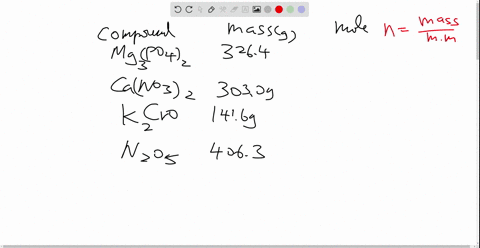 Compound mass(g) mole n = mass/m.m
Mg3(PO4)2 326.4
Ca(NO3)2 303.0g
K2CrO 141.6g
N2O5 406.3